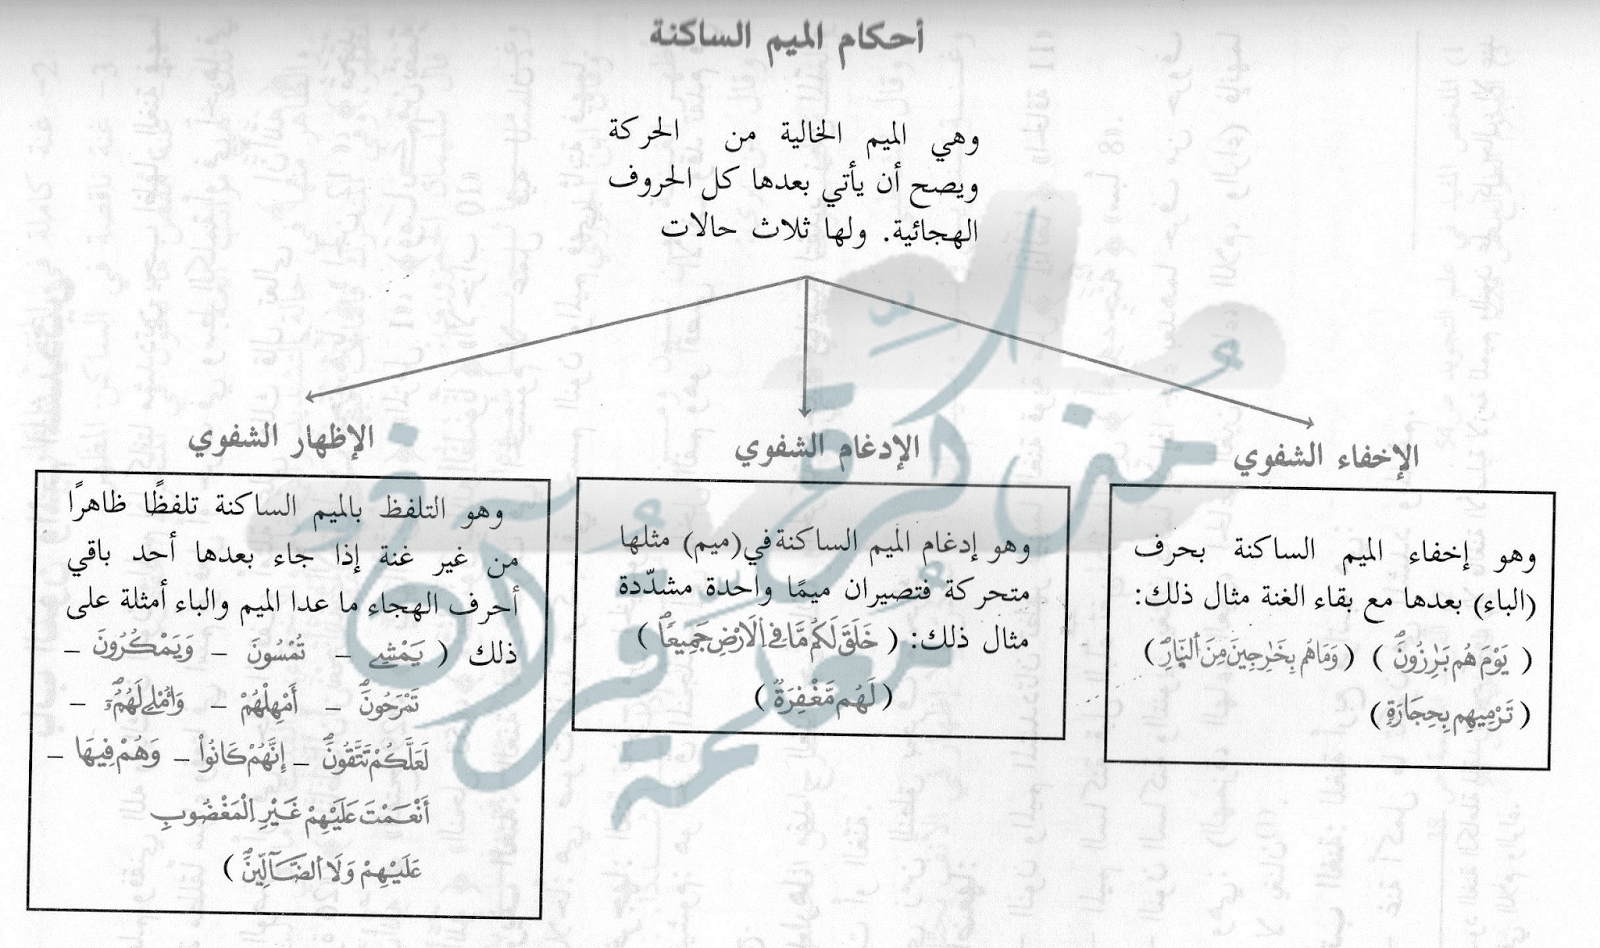 أحكام الميم الساكنة
وهي الميم الخالية من الحركة
ويصح أن يأتي بعدها كل الحروف
الهجائية. ولها ثلاث حالات
الإخفاء الشفوي
وهو إخفاء الميم الساكنة بحرف
(الباء) بعدها مع بقاء الغنة مثال ذلك:
( يَوْمَ هُم بَٰرِزُونَ ) ( وَمَا هُم بِخَٰرِجِينَ مِنَ ٱلنَّارِ )
( تَرْمِيهِم بِحِجَارَةٍ )
الإدغام الشفوي
وهو إدغام الميم الساكنة في (ميم) مثلها
متحركة فتصيران ميمًا واحدة مشدّدة
مثال ذلك: ( خَلَقَ لَكُم مَّا فِي ٱلَارْضِ جَمِيعًا )
( لَهُم مَّغْفِرَةٌ )
الإظهار الشفوي
وهو التلفظ بالميم الساكنة تلفظًا ظاهرًا
من غير غنة إذا جاء بعدها أحد باقي
أحرف الهجاء ما عدا الميم والباء أمثلة على
ذلك ( يَمْشِے – تُمْسُونَ – وَيَمْكُرُونَ –
تَمْرَحُونَ – أَمْهِلْهُمْ – وَأُمْلِے لَهُمُۥٓ –
لَعَلَّكُمْ تَتَّقُونَ – إِنَّهُمْ كَانُواْ – وَهُمْ فِيهَا –
أَنْعَمْتَ عَلَيْهِمْ غَيْرِ اِلْمَغْضُوبِ
عَلَيْهِمْ وَلَا اَلضَّآلِّينَ )